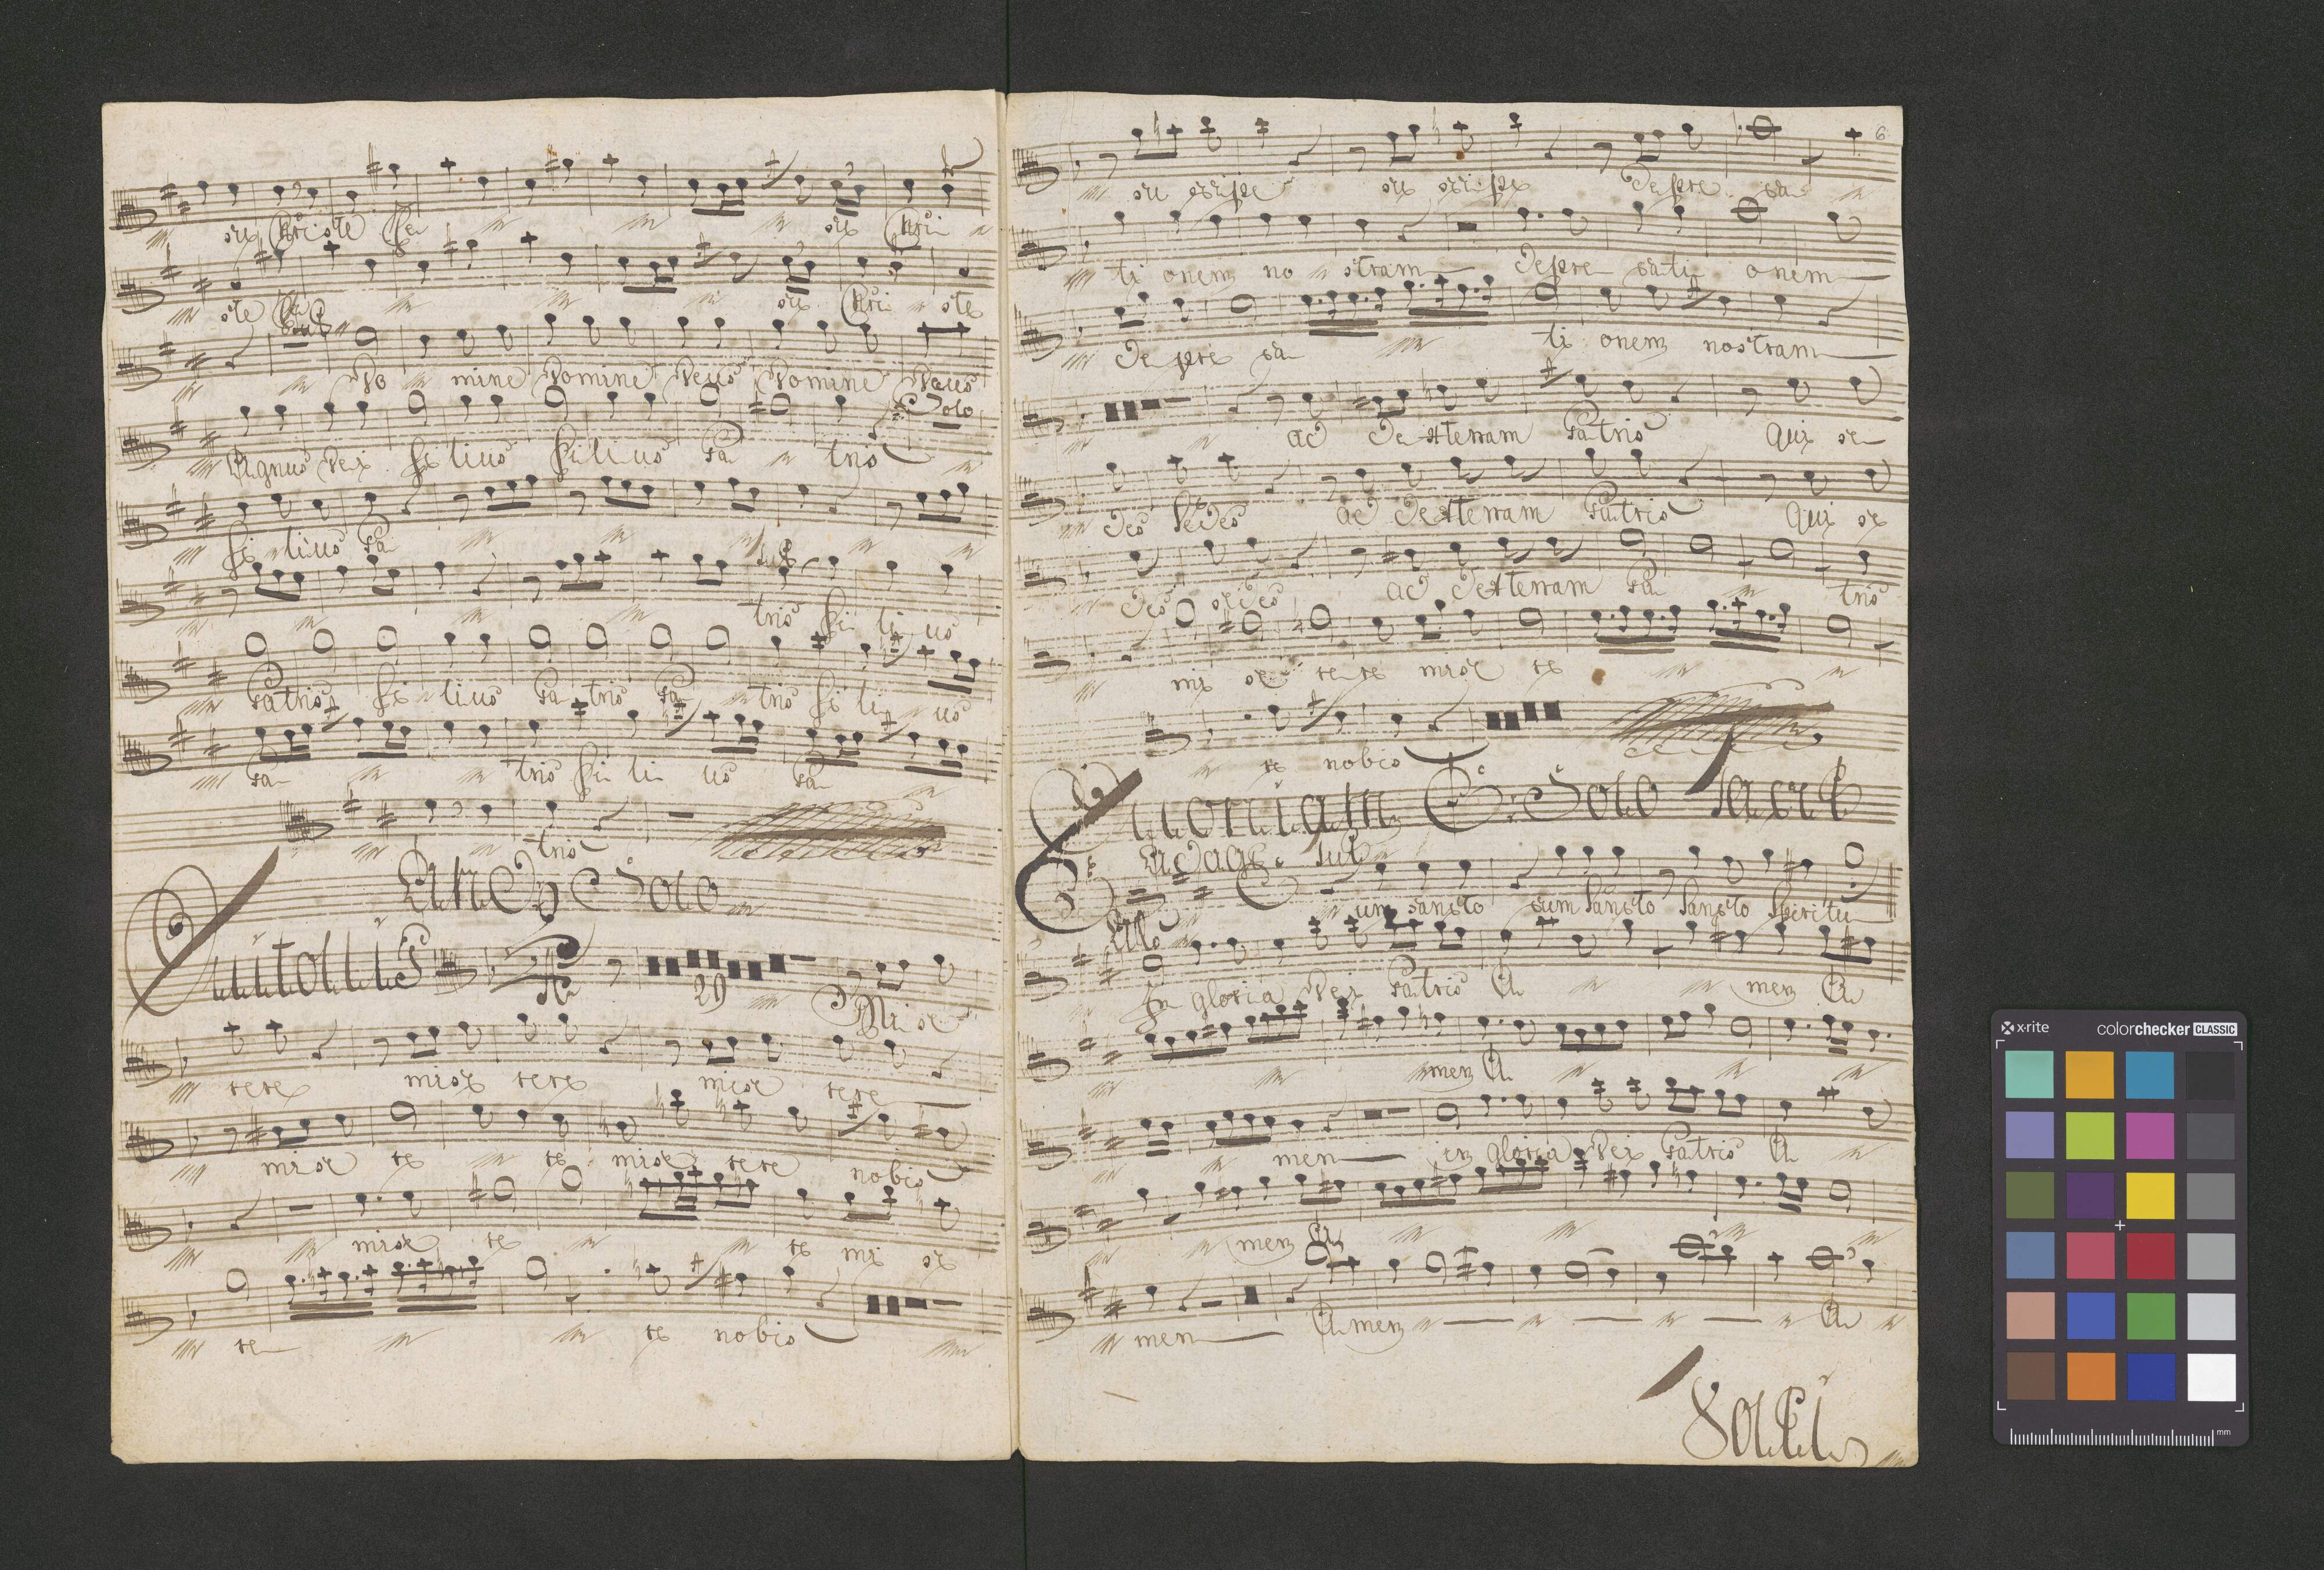 su Christe Je su Chri
ste Je su Chri ste
Do mine Domine Deus Domine Deus
Solo
Agnus Dei fi lius fi li us Pa tris
fi lius Pa
tris fi li us
Patris fi lius Pa tris Pa tris fi li us
Pa tris fi li us Pa
tris
Solo
Qui tollis
29
Mi se
rere mise rere mise rere
mise re re mise rere nobis
mise re re mi se
re re nobis
6
su scipe su scipe depre ca
ti onem no stram depre cati onem
de pre ca ti onem nostram
ad dexteram Patris qui se
des sedes ad dexteram Patris qui se
des sedes ad dexteram Pa tris
mi se re re mise re
re nobis
Quoniam Solo Tacet
Adagio Tutti
Cum sancto cum sancto sancto spiritu
Allo
In gloria Dei Patris A men A
men A
men in gloria Dei Patris A
men A
men Amen A
Volti
x-rite
colorchecker CLASSIC
mm